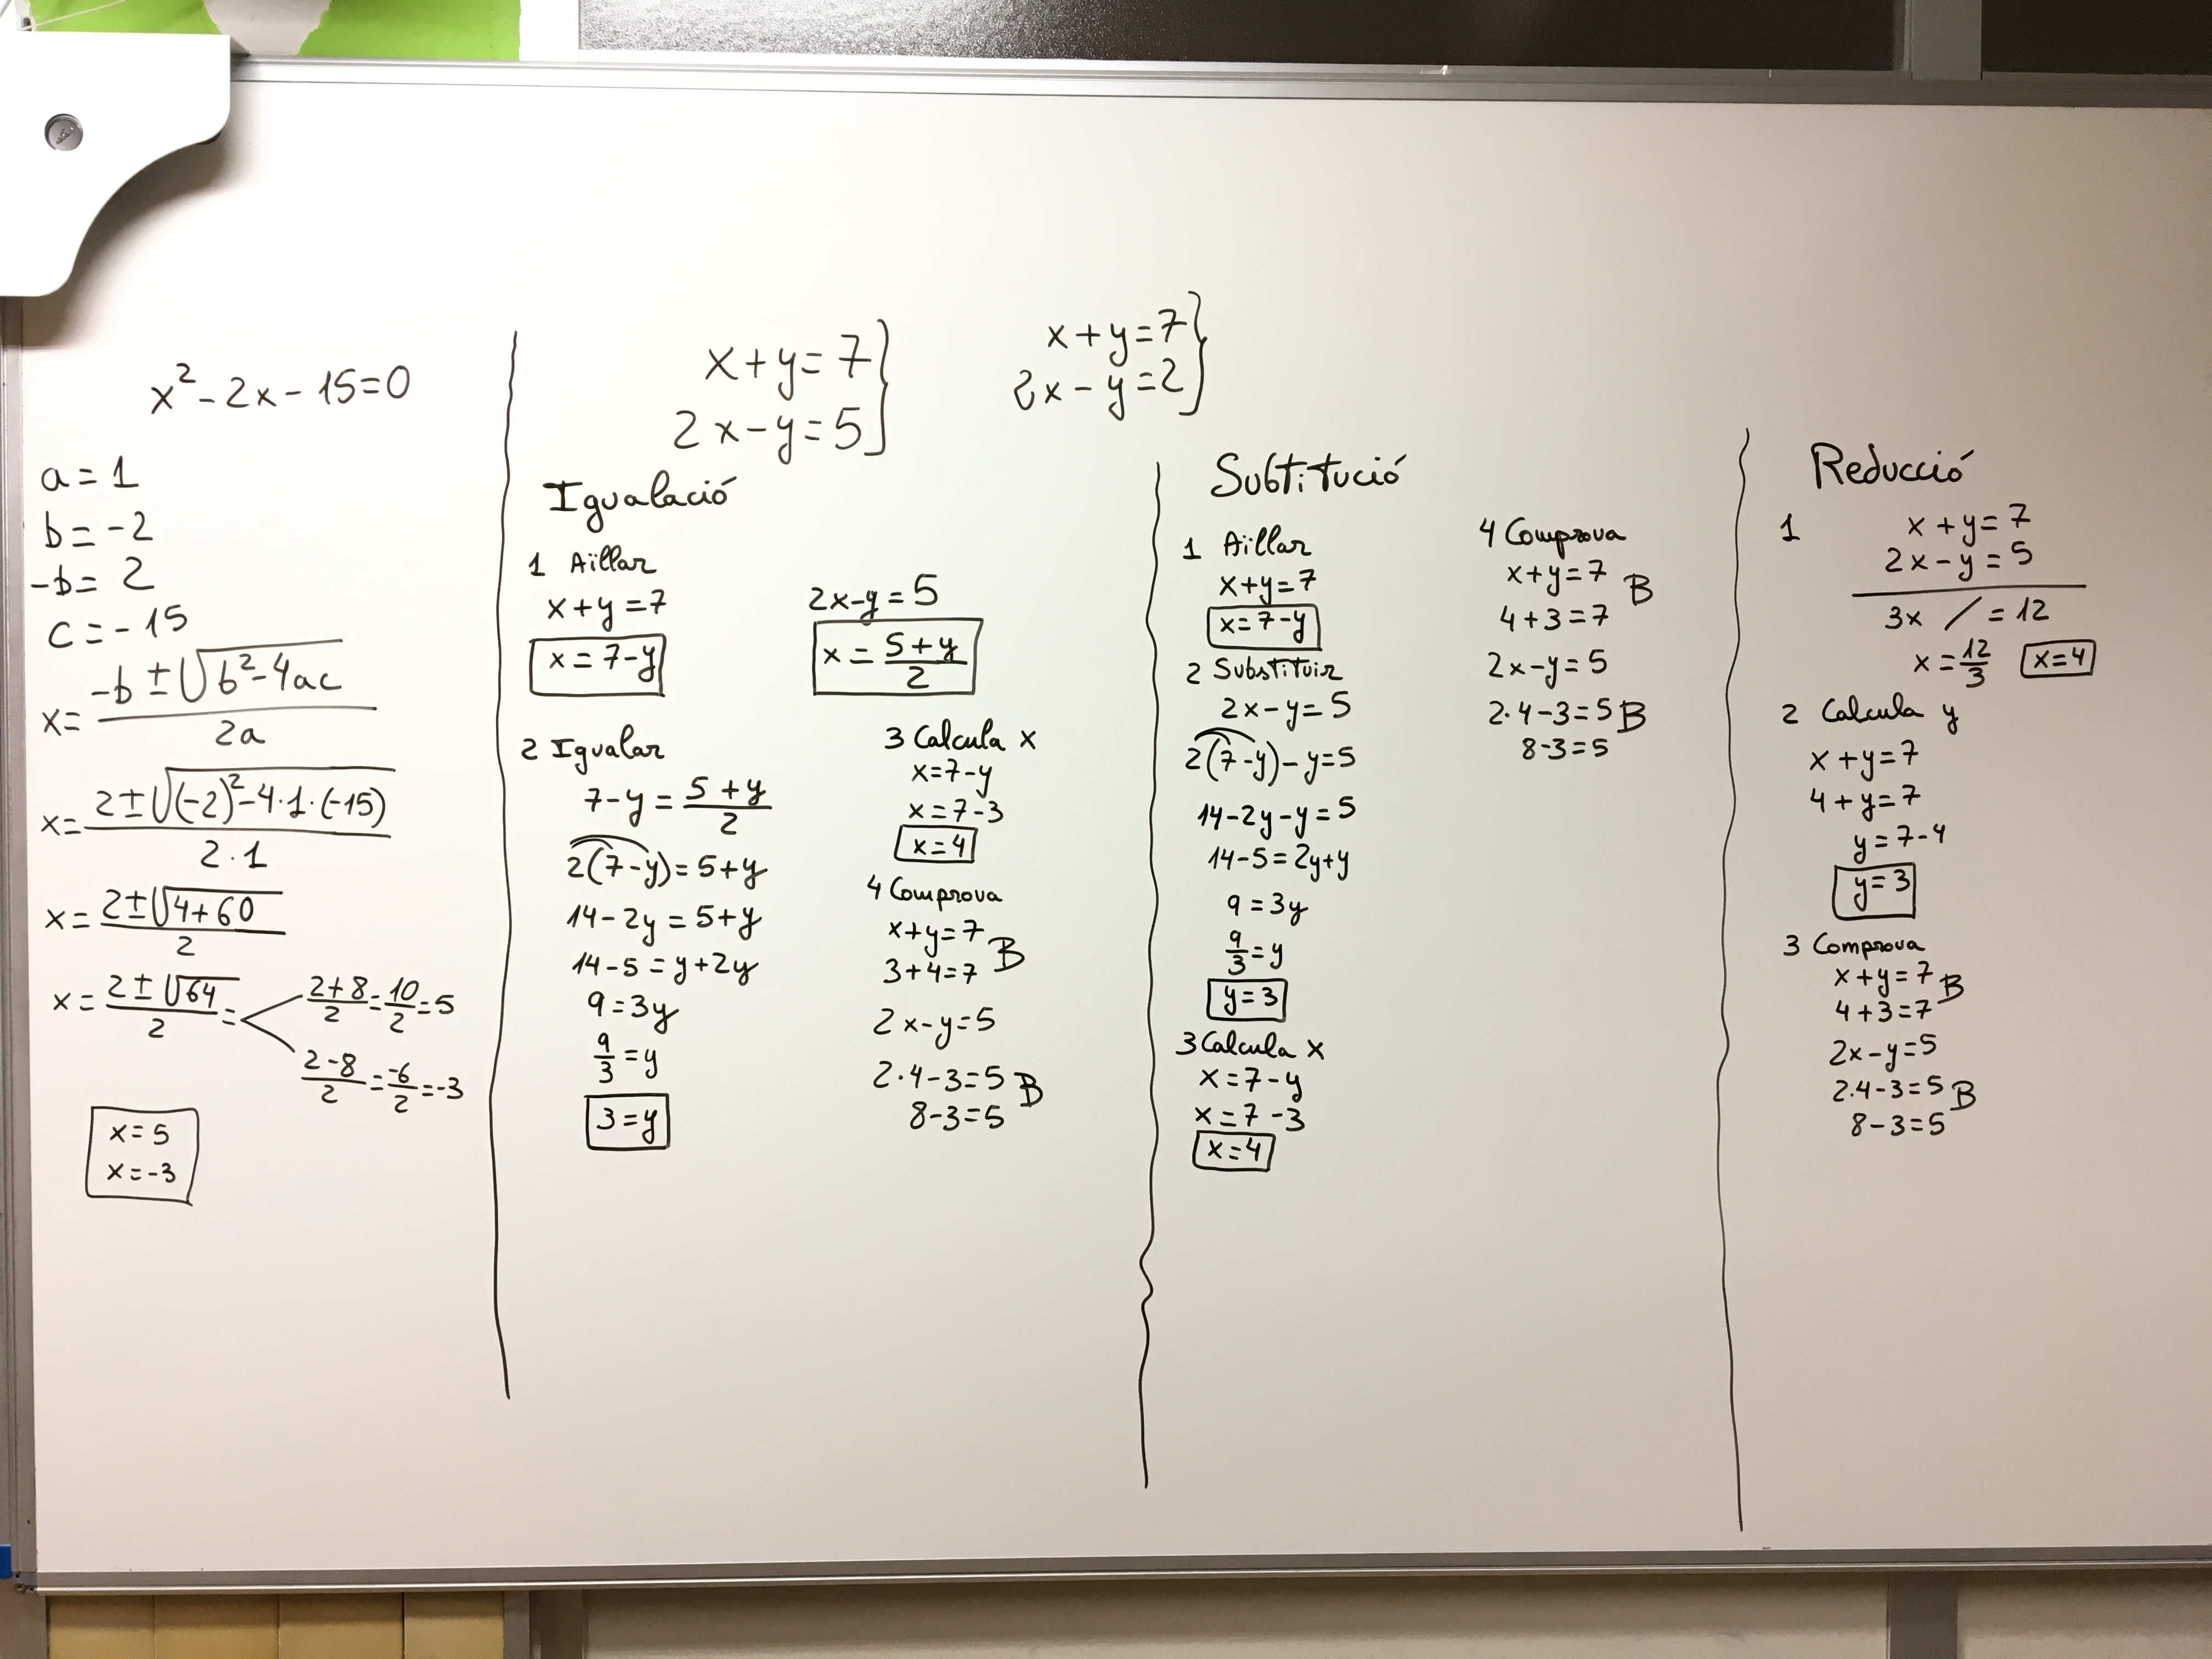 x² - 2x - 15 = 0
a = 1
b = -2
-b = 2
c = -15
x = (-b ± √(b² - 4ac)) / 2a
x = (2 ± √((-2)² - 4·1·(-15))) / 2·1
x = (2 ± √(4 + 60)) / 2
x = (2 ± √64) / 2 =
(2 + 8)/2 = 10/2 = 5
(2 - 8)/2 = -6/2 = -3
x = 5
x = -3
x + y = 7 }
2x - y = 5 }
x + y = 7 }
2x - y = 2 }
Igualació
1 Aïllar
x + y = 7
x = 7 - y
2x - y = 5
x = (5 + y)/2
2 Igualar
7 - y = (5 + y)/2
2(7 - y) = 5 + y
14 - 2y = 5 + y
14 - 5 = y + 2y
9 = 3y
9/3 = y
3 = y
3 Calcula x
x = 7 - y
x = 7 - 3
x = 4
4 Comprova
x + y = 7 B
3 + 4 = 7
2x - y = 5
2·4 - 3 = 5 B
8 - 3 = 5
Subtitució
1 Aïllar
x + y = 7
x = 7 - y
2 Substituir
2x - y = 5
2(7 - y) - y = 5
14 - 2y - y = 5
14 - 5 = 2y + y
9 = 3y
9/3 = y
y = 3
3 Calcula x
x = 7 - y
x = 7 - 3
x = 4
4 Comprova
x + y = 7 B
4 + 3 = 7
2x - y = 5
2·4 - 3 = 5 B
8 - 3 = 5
Reducció
1
x + y = 7
2x - y = 5
3x / = 12
x = 12/3 x = 4
2 Calcula y
x + y = 7
4 + y = 7
y = 7 - 4
y = 3
3 Comprova
x + y = 7 B
4 + 3 = 7
2x - y = 5
2·4 - 3 = 5 B
8 - 3 = 5